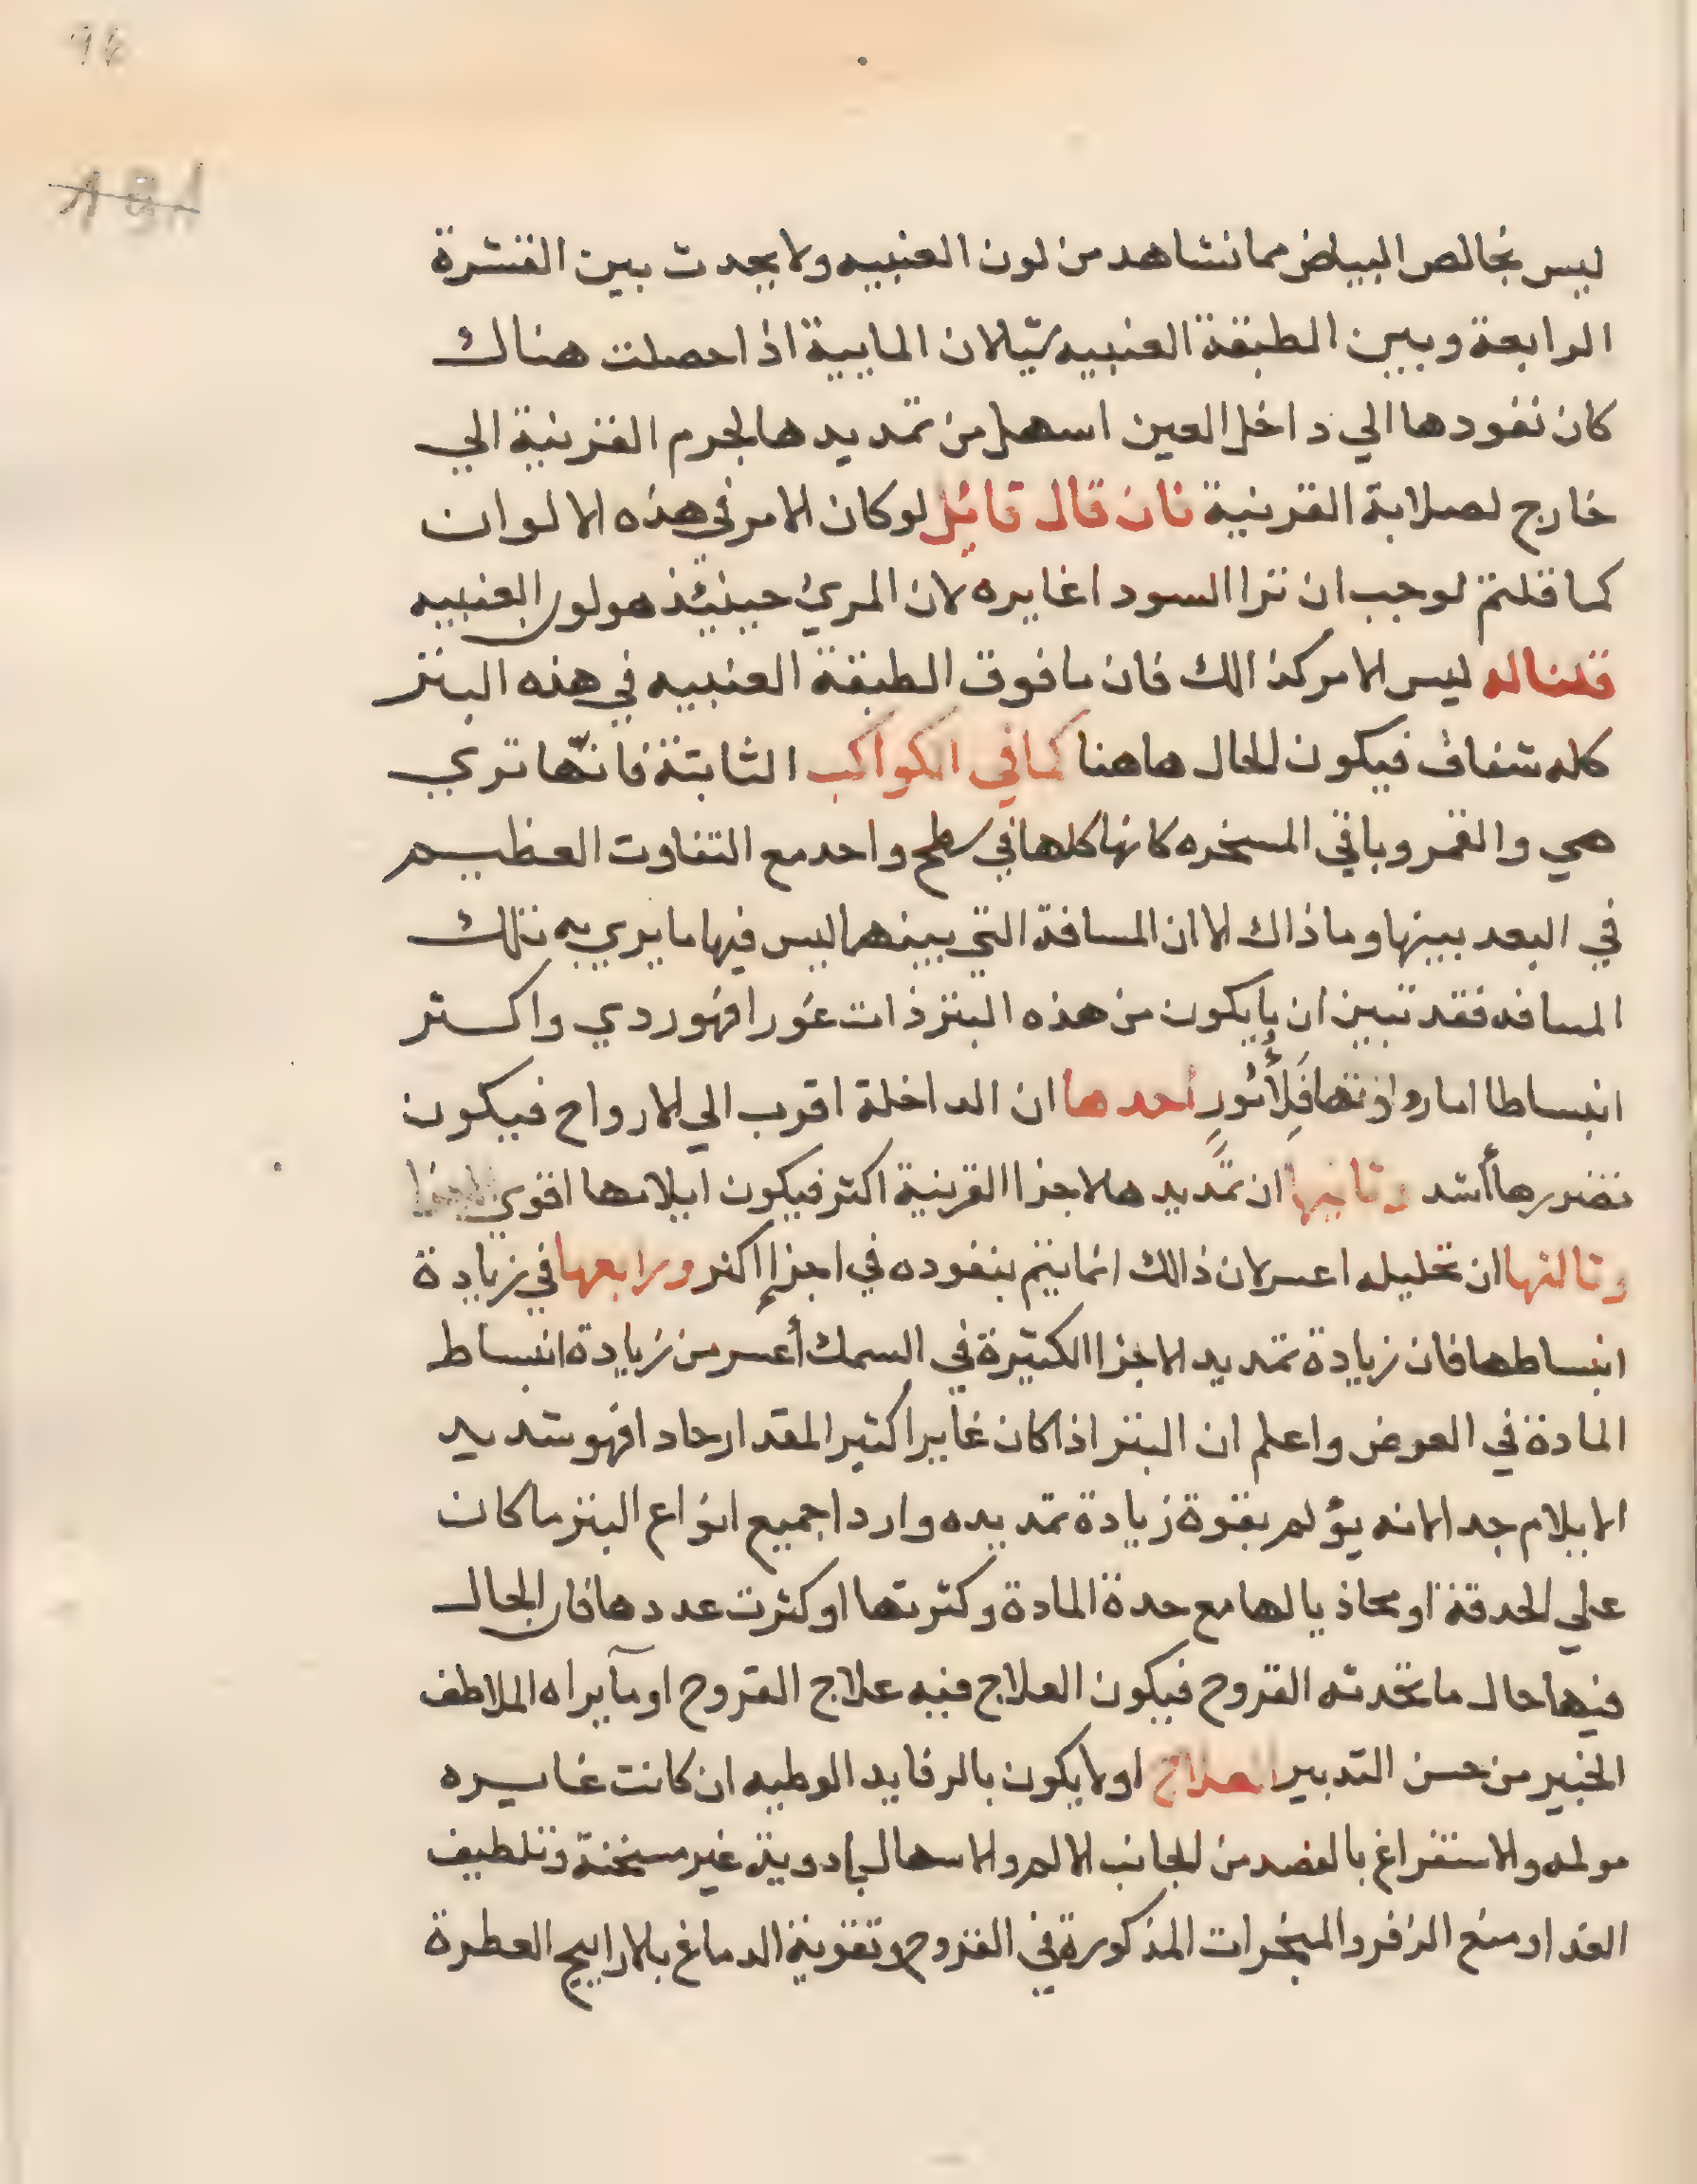 96
ليس بخالص البياض مما نشاهد من لون العنبيه ولا يحدث بين القشرة
الرابعة وبين الطبقة العنبيه سيلان المايية اذا حصلت هناك
كان نفودها الي داخل العين اسهل من تمديدها لجرم القرنية الي
خارج لصلابة القرنية فان قال قائل لو كان الامر في هذه الالوان
كما قلتم لوجب ان نرا السودا غايره لان المريئ حينئذ هو لون العنبيه
قلنا له ليس الامر كذالك فان ما فوق الطبقة العنبيه في هذه البثر
كله شفاف فيكون للحال هاهنا كما في الكواكب الثابتة فانها تري
هي والقمر وباقي المسخره كانها كلها في سطح واحد مع التفاوت العظيم
في البعد بينها وما ذاك الا ان المسافة التي بينهما ليس فيها ما يري به تلك
المسافه فقد تبين ان يكون من هذه البثر ذات غورا فهو ردي واكثر
انبساطا اما رداوتها فلأمور احدها ان الداخلة اقرب الي الارواح فيكون
تضررها أشد وثانيها ان تمديدها لاجزا القرنية اكثر فيكون ايلامها اقوي
وثالثها ان تحليله اعسر لان ذالك انما يتم بنفوده في اجزإ اكثر ورابعها في زيادة
انبساطها فان زيادة تمديد الاجزا الكثيرة في السمك أعسر من زيادة انبساط
المادة في العرض واعلم ان البثر اذا كان غايرا كثير المقدار حادا فهو شديد
الايلام جدا لانه يؤلم بقوة زيادة تمديده واردا جميع انواع البثر ما كان
علي الحدقة او محاذيا لها مع حدة المادة وكثرتها او كثرت عددها فان الحال
فيها حال ما تحدثه القروح فيكون العلاج فيه علاج القروح او مآ يراه الملاطف
الخبير من حسن التدبير العلاج اولا يكون بالرفايد الوطيه ان كانت غايره
مولمه والاستفراغ بالفصد من الجانب الالم والاسهال بادوية غير مسخنة وتلطيف
الغدا ومنع الزفر والمبخرات المذكورة في القروح وتقوية الدماغ بالاراييح العطرة